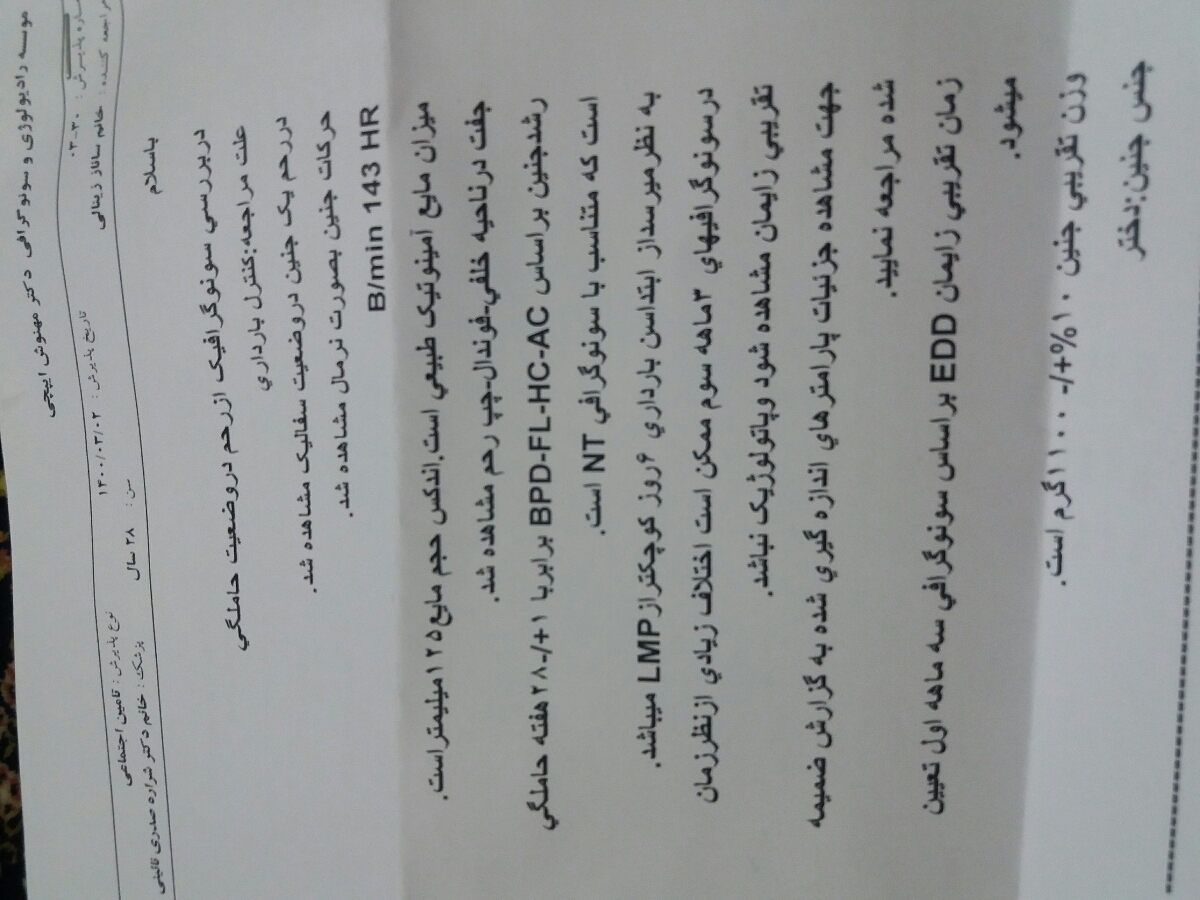 موسسه رادیولوژی و سونوگرافی دکتر مهنوش ایبچی
شماره پذیرش : ۰۳۰۳۰
تاریخ پذیرش : ۱۴۰۰/۰۳/۰۲
نوع پذیرش : تامین اجتماعی
مراجعه کننده : خانم ساناز زینالی
سن : ۲۸ سال
پزشک : خانم دکتر شراره صدری نالینی
باسلام
دربررسي سونوگرافیک ازرحم دروضعیت حاملگي
علت مراجعه:کنترل بارداري
دررحم یک جنین دروضعیت سفالیک مشاهده شد.
حرکات جنین بصورت نرمال مشاهده شد.
B/min 143 HR
میزان مایع آمینوتیک طبیعي است.اندکس حجم مایع۱۲۵میلیمتراست.
جفت درناحیه خلفي-فوندال-چپ رحم مشاهده شد.
رشدجنین براساس BPD-FL-HC-AC برابربا ۱+/-۲۸ هفته حاملگي
است که متناسب با سونوگرافي NT است.
به نظرمیرسداز ابتداسن بارداري ۶روز کوچکتراز LMP میباشد.
درسونوگرافیهاي ۳ماهه سوم ممکن است اختلاف زیادي ازنظرزمان
تقریبي زایمان مشاهده شود وپاتولوژیک نباشد.
جهت مشاهده جزئیات پارامترهاي اندازه گیري شده به گزارش ضمیمه
شده مراجعه نمایید.
زمان تقریبي زایمان EDD براساس سونوگرافي سه ماهه اول تعیین
میشود.
وزن تقریبي جنین ۱۰%+/- ۱۱۰۰گرم است.
جنس جنین:دختر